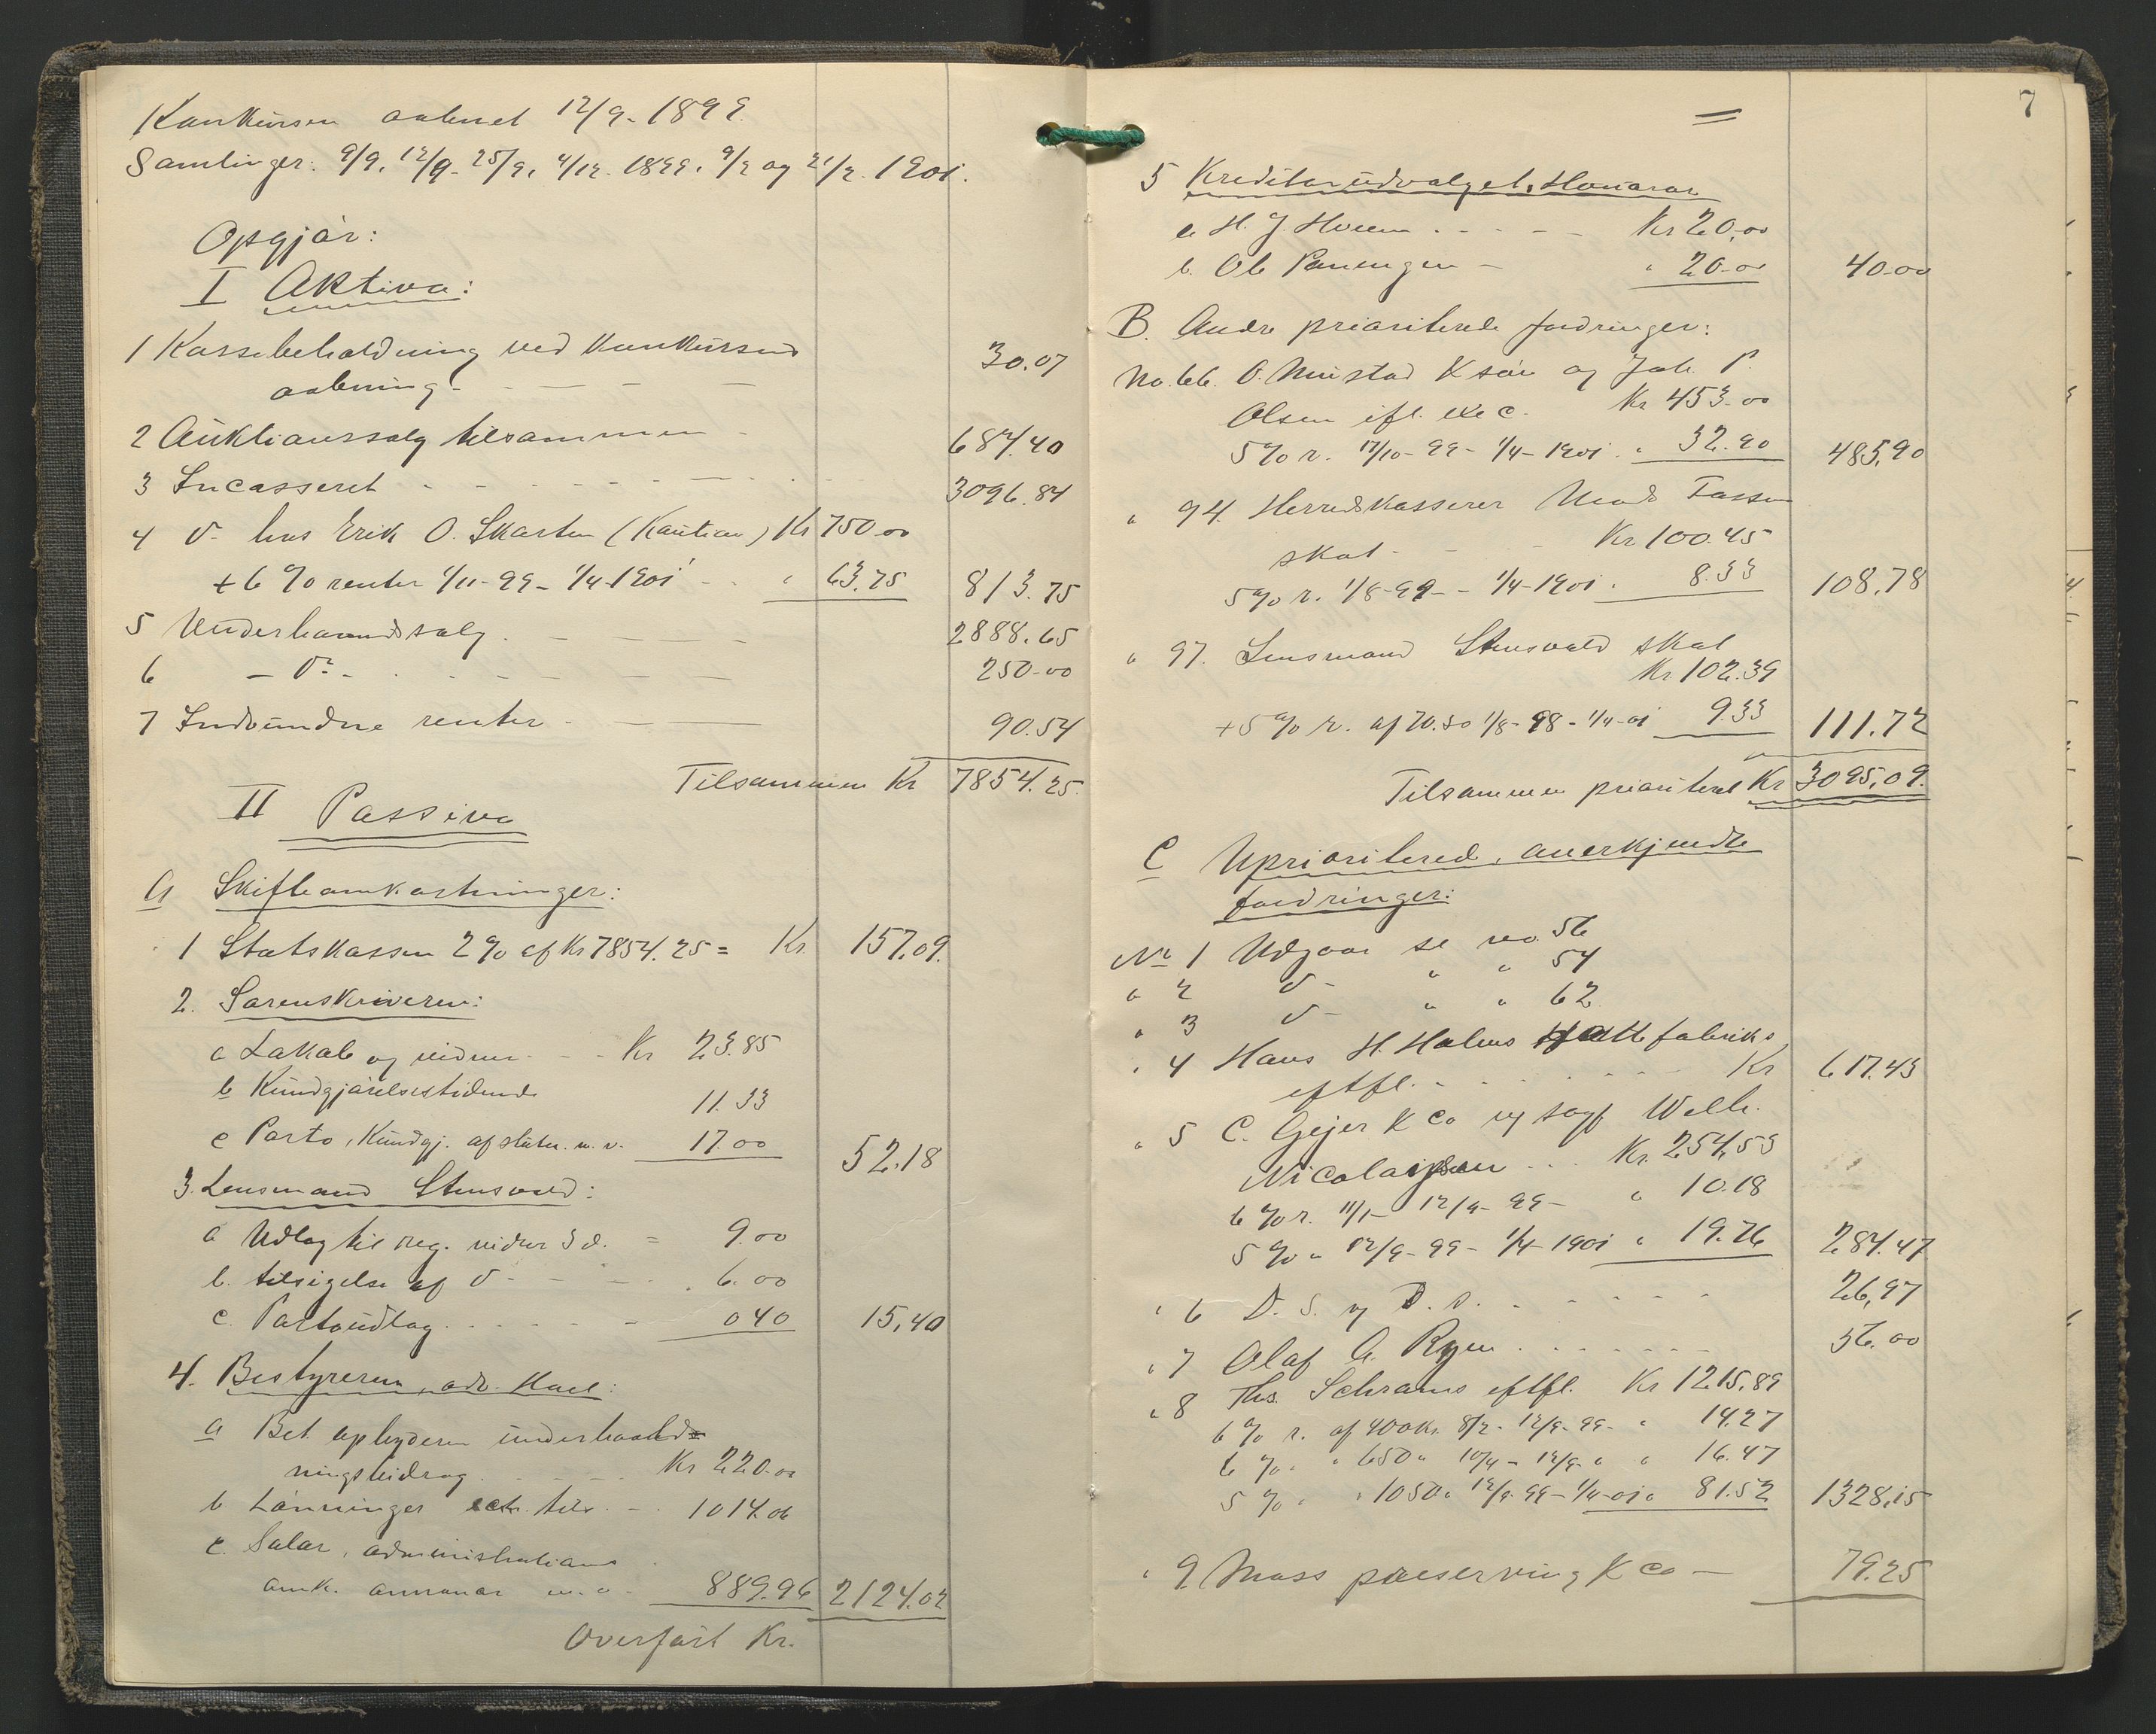 Konkursen aabnet 12/9-1899.
Samlinger: 9/9, 12/9-25/9, 4/12-1899, 9/2 og 21/2 1901.
Opgjör:
I Aktiva:
1 Kassebeholdning ved konkursens
aabning - - - -
30.07
2 Auktionssalg tilsammen -
684.40
3 Incasseret - - - - - -
3096.84
4 D- hos Erik O. Skarten (Kaution) Kr 750.00
+ 6 % renter 1/11-99-1/4-1901 - - " 63.75 813.75
5 Underhaandssalg. - - - 2888.65
6 - D: - - - - - 250-00
7 Indvundne renter - - 90.54
Tilsammen Kr 7854.25
II Passiva
A Skifteomkostninger:
1 Statskassen 2 % af Kr 7854.25 = Kr. 157.09.
2. Sorenskriveren:
a Lokale og vidner - - - Kr 23.85
b Kundgjörelsestidende 11.33
c Porto, Kundgj. af slutn. m. v. 17.00 52.18
3. Lensmand Stensvold:
a Udlæg til reg. vidner 3 d. = 9.00
b. tilsigelse af D - - - . 6.00
c. Portoudlæg. - - - - 0 40 15,40
4. Bestyreren, adv.
a Bet. opbyderen underhold-
ningsbidrag. - - - Kr 220.00
b Lönninger etc. - 1014.06
c. Salær, administrations
omk. annoncer m. v. - 889.96 2124.02
Overfört Kr.
7
=
5 Kreditorudvalget, Honorar
a H. J. - - - - Kr 20,00
b. Ole - " 20-00 40-00
B. Andre prioriterede fordringer:
No. 66. O. Mustad & sön og Joh. P.
Olsen ifl. exec. Kr 453-00
5 % r. 17/10-99-1/4-1901. " 32.90 485,90
" 94. Herredskasserer Fossum
skat - - - Kr 100.45
5 % r. 1/8-99 - 1/4-1901. 8.33 108.78
" 97. Lensmand Stensvold skat
Kr 102.39
+ 5 % r. af 70.80 1/8-98-1/4-01 9.33 111.72
Tilsammen prioriteret Kr 3095,09.
C Uprioriterede, anerkjendte
fordringer:
No 1 Udgaar se no. 56
" 2 D- " " 54
" 3 D- " " 62
" 4 Hans H. Holms Hattefabriks
eftfl. - - - - - Kr 617.43
" 5 C. Gejer & Co ug sagf Wilh.
Nicolaysen ... Kr. 254,53
6 % r. 11/1- 12/9-99- " 10.18
5 % " 12/9-99- 1/4-1901 " 19.76 284.47
" 6 D. S. ug D. S. . - - - - 26,97
" 7 Olaf A. Ryen . . . . . . 36.00
" 8 Ths. Schrams eftfl. Kr 1215,89
6 % r. af 400 Kr. 8/2-12/9-99- " 14.27
6 % " " 650 " 10/4-12/9- " " 16.47
5 % " " 1050 " 12/9-99-1/4-01 " 81.52 1328,15
" 9 Moss preserving & Co - 79.25